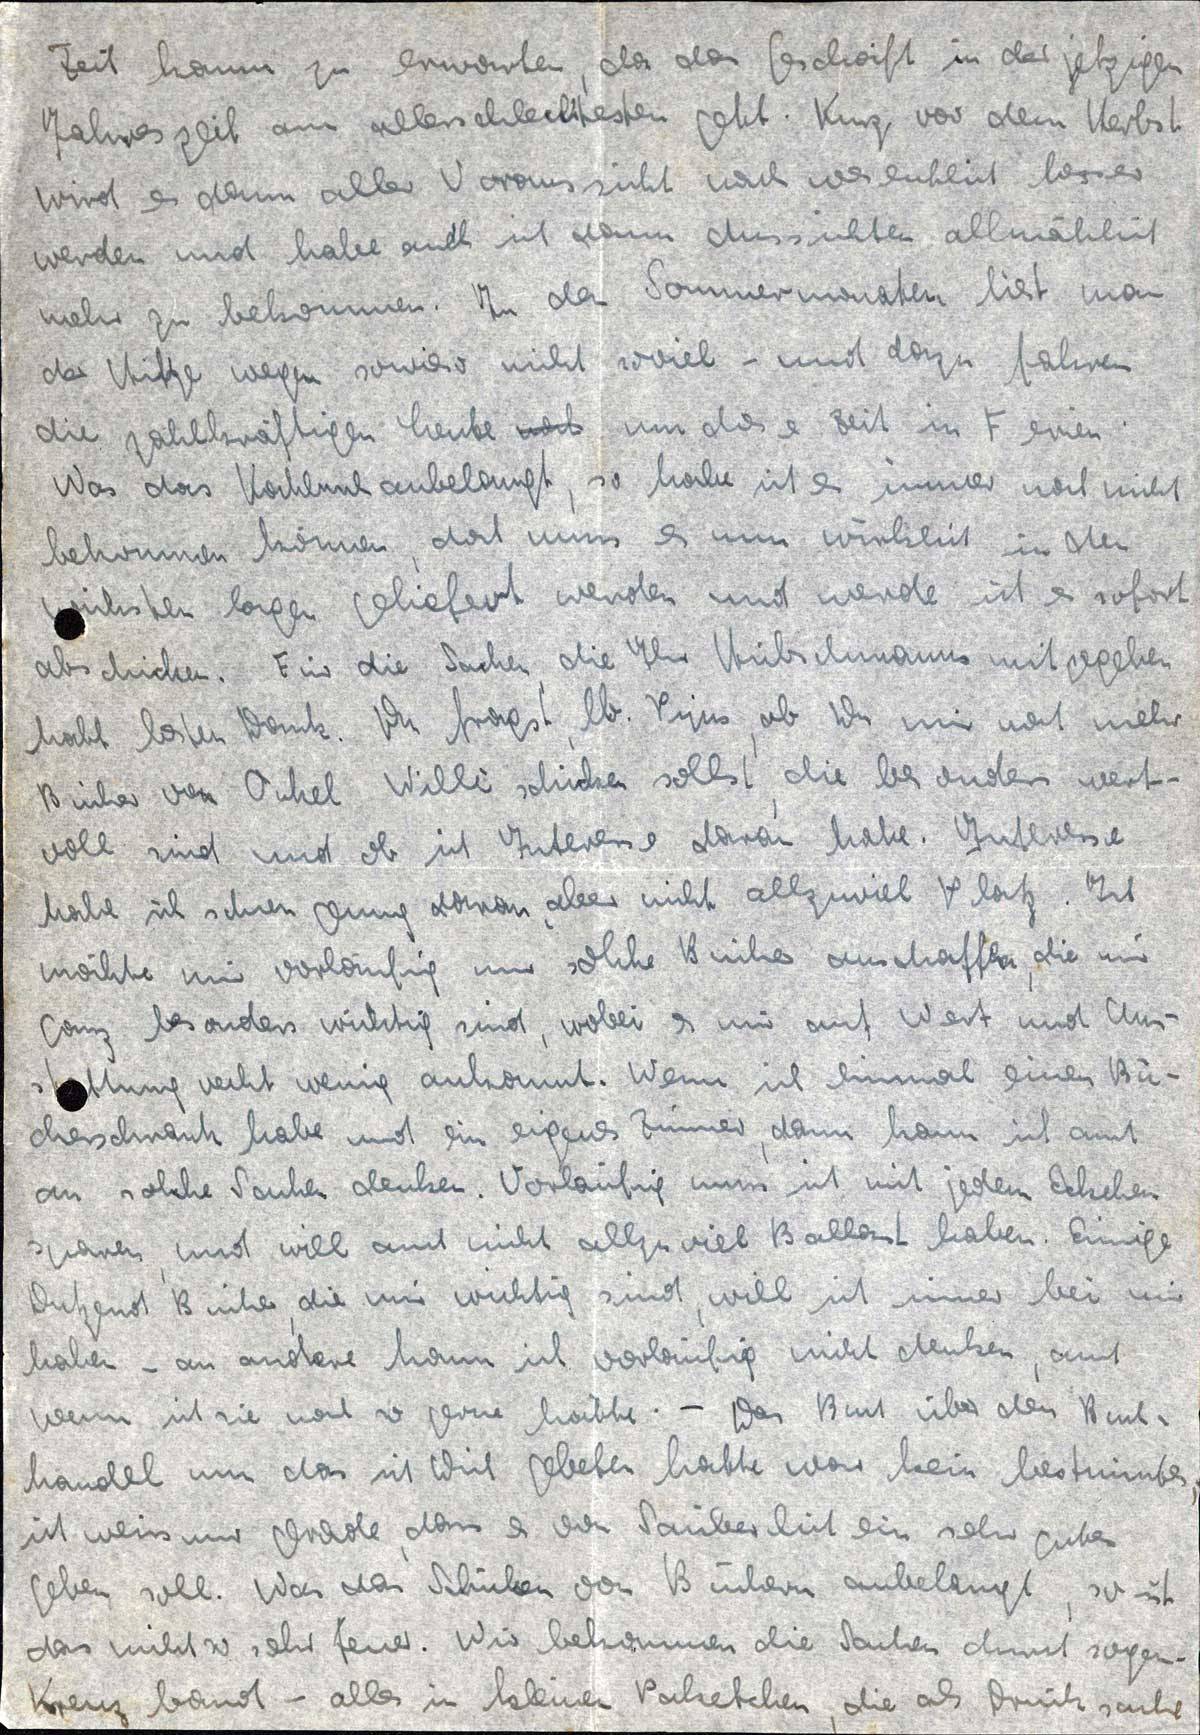 Zeit kaum zu erwarten, da das Geschäft in der jetzigen
Jahreszeit am allerschlechtesten geht. Kurz vor dem Herbst
wird es dann aller Voraussicht nach wesentlich besser
werden und habe auch ich dann Aussichten allmählich
mehr zu bekommen. In den Sommermonaten liest man
der Hitze wegen sowieso nicht soviel - und dazu fahren
die zahlkräftigen Leute um diese Zeit in Ferien.
Was das Kochbuch anbelangt, so habe ich es immer noch nicht
bekommen können, doch muss es nun wirklich in den
nächsten Tagen geliefert werden und werde ich es sofort
abschicken. Für die Sachen, die Ihr Hübschmanns mitgegeben
habt besten Dank. Du fragst, lb. Pijus, ob Du mir noch mehr
Bücher von Onkel Willi schicken sollst, die besonders wert-
voll sind und ob ich Interesse daran habe. Interesse
habe ich schon genug daran, aber nicht allzuviel Platz. Ich
möchte mir vorläufig nur solche Bücher anschaffen, die mir
ganz besonders wichtig sind, wobei es mir auf Wert und Aus-
stattung recht wenig ankommt. Wenn ich einmal einen Bü-
cherschrank habe und ein eigenes Zimmer, dann kann ich auch
an solche Sachen denken. Vorläufig muss ich mit jedem Eckchen
sparen, und will auch nicht allzuviel Ballast haben. Einige
Dutzend Bücher, die mir wichtig sind, will ich immer bei mir
haben - an andere kann ich vorläufig nicht denken, auch
wenn ich sie noch so gerne hätte. - Das Buch über den Buch-
handel um das ich Dich gebeten hatte war kein bestimmtes,
ich weiss nur gerade, dass es von Säuberlich ein sehr gutes
geben soll. Was das Schicken von Büchern anbelangt, so ist
das nicht so sehr teuer. Wir bekommen die Sachen durch sogen.
Kreuzband - alles in kleinen Paketchen, die als Drucksache